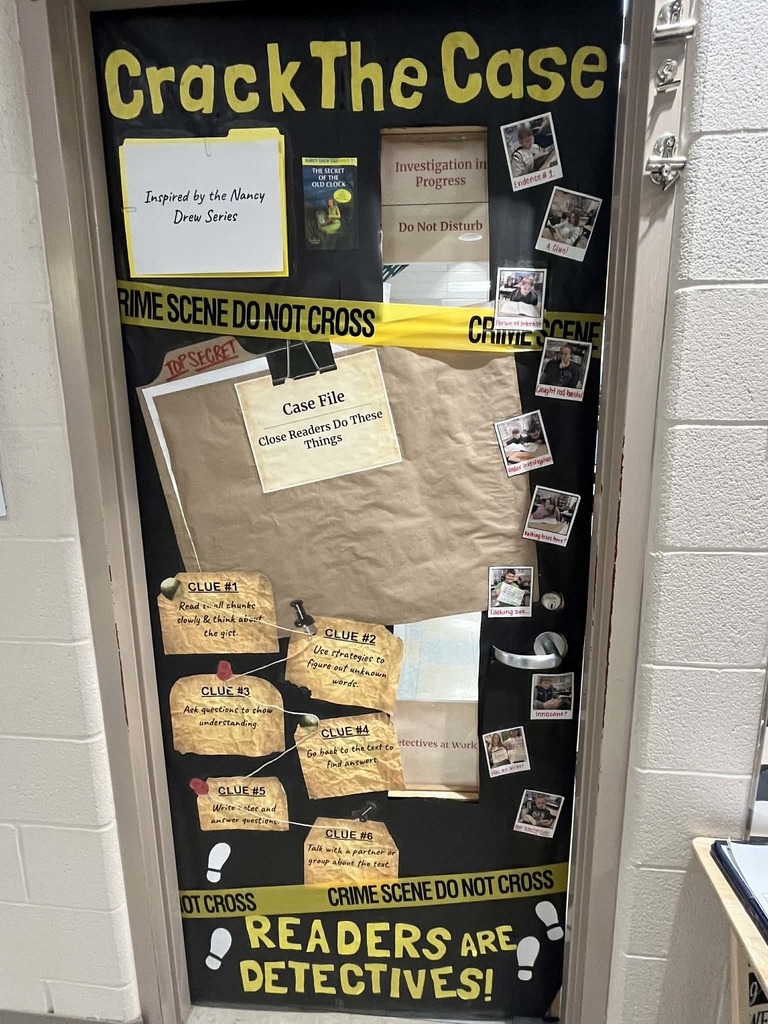 Crack The Case
Inspired by the Nancy
Drew Series
NANCY DREW
THE SECRET
OF THE
OLD CLOCK
Investigation in
Progress
Do Not Disturb
Evidence #1.
A Clue!
RIME SCENE DO NOT CROSS
CRIME SCENE
Person of interest
Caught red handed
TOP SECRET
Case File
Close Readers Do These
Things
Under investigation
Nothing to see here!
Looking for...
CLUE #1
Read small chunks
slowly & think about
the gist.
CLUE #2
Use strategies to
figure out unknown
words.
CLUE #3
Ask questions to show
understanding.
CLUE #4
Go back to the text to
find answers
etectives at Work
Innocent?
CLUE #5
Write notes and
answer questions
CLUE #6
Talk with a partner or
group about the text.
OT CROSS
CRIME SCENE DO NOT CROSS
READERS ARE
DETECTIVES!